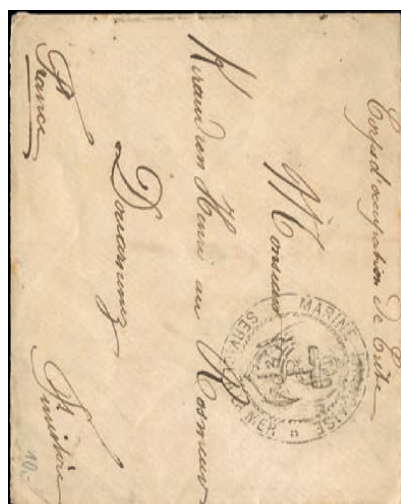 Corps d'occupation de Crète
Monsieur
Keraudren Henri au Rosmeur
Douarnenez
Ft Finistère
Ft France
MARINE FRANÇAISE
SERV MER
10.-